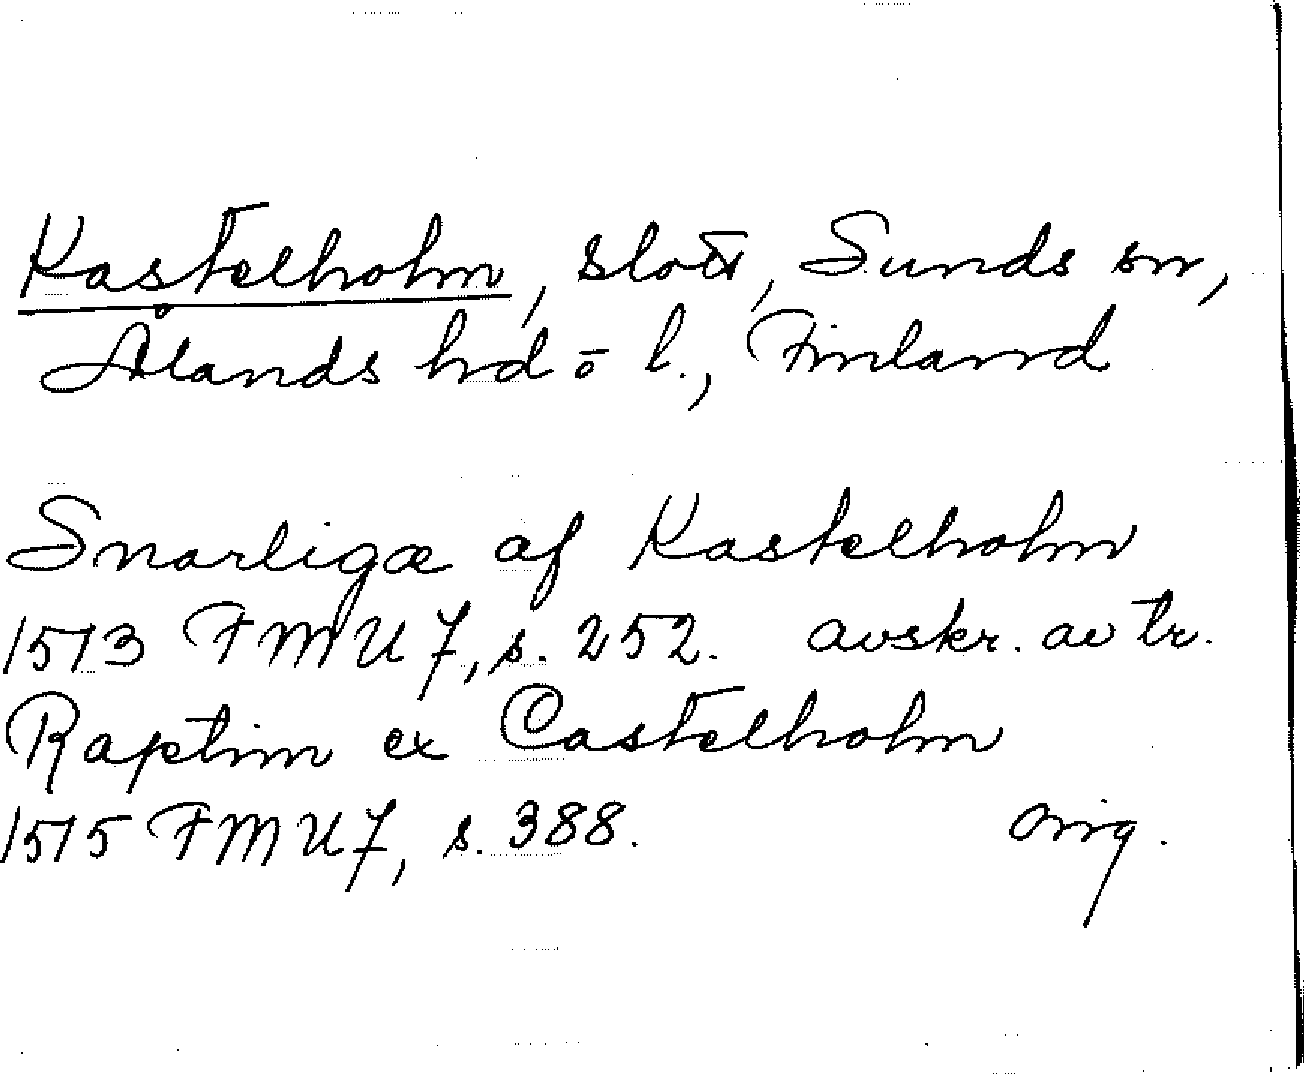 Kastelholm, slott, Sunds sn,
Ålands hd o l., Finland
Snarligæ af Kastelholm
1513 FMU 7, s. 252. avskr. av tr.
Raptim ex Castelholm
1515 FMU 7, s. 388. orig.